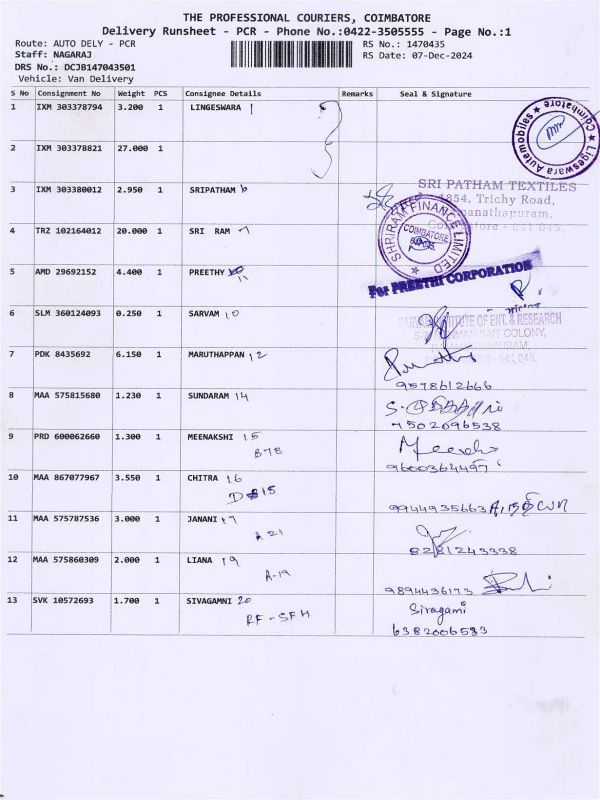 THE PROFESSIONAL COURIERS, COIMBATORE
Delivery Runsheet - PCR - Phone No.:0422-3505555 - Page No.:1
Route: AUTO DELY - PCR RS No.: 1470435
Staff: NAGARAJ RS Date: 07-Dec-2024
DRS No.: DCJB147043501
Vehicle: Van Delivery
S No Consignment No Weight PCS Consignee Details Remarks Seal & Signature
1 IXM 303378794 3.200 1 LINGESWARA 1
Ligeswara Automobiles ★ Coimbatore ★
2 IXM 303378821 27.000 1
3 IXM 303380012 2.950 1 SRIPATHAM 6
SRI PATHAM TEXTILES
1854, Trichy Road,
4 TRZ 102164012 20.000 1 SRI RAM 7
SHRIRAM FINANCE LIMITED
COIMBATORE
5 AMD 29692152 4.400 1 PREETHY 11
For PREETHI CORPORATION
6 SLM 360124093 0.250 1 SARVAM 10
INSTITUTE OF ENT. & RESEARCH
SAIT COLONY,
7 PDK 8435692 6.150 1 MARUTHAPPAN 12
9578612666
8 MAA 575815680 1.230 1 SUNDARAM 14
7502696538
9 PRD 600062660 1.300 1 MEENAKSHI 15
B78
9600364497
10 MAA 867077967 3.550 1 CHITRA 16
9944935663
11 MAA 575787536 3.000 1 JANANI 17
A 21
8281243338
12 MAA 575860309 2.000 1 LIANA 19
A-19
9894436173
13 SVK 10572693 1.700 1 SIVAGAMNI 20
Sivagami
RF-SFH
6382006583